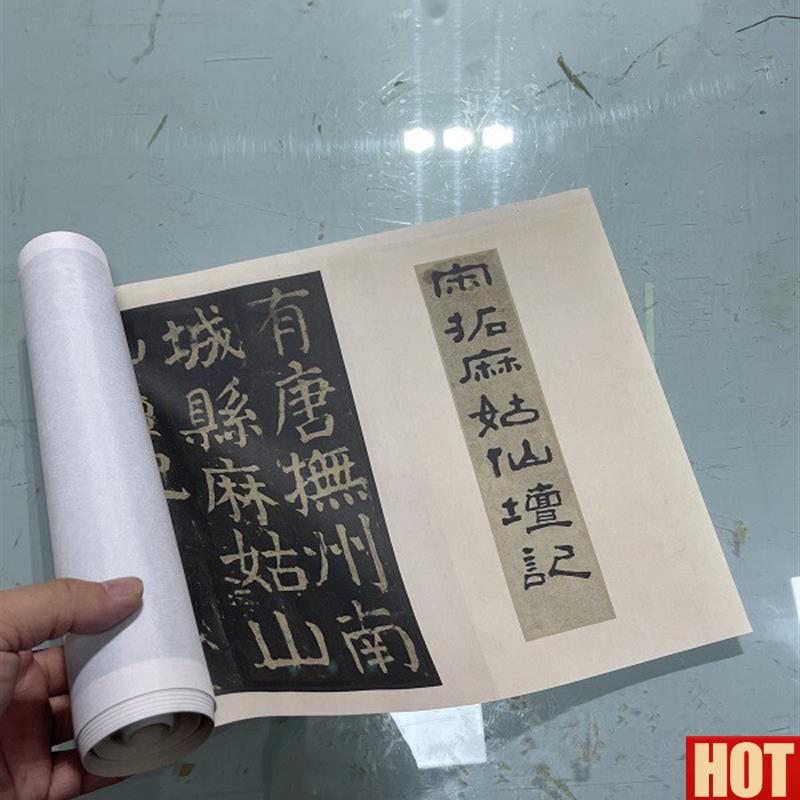 宋拓麻姑仙壇記
有唐撫州南
城縣麻姑山
HOT